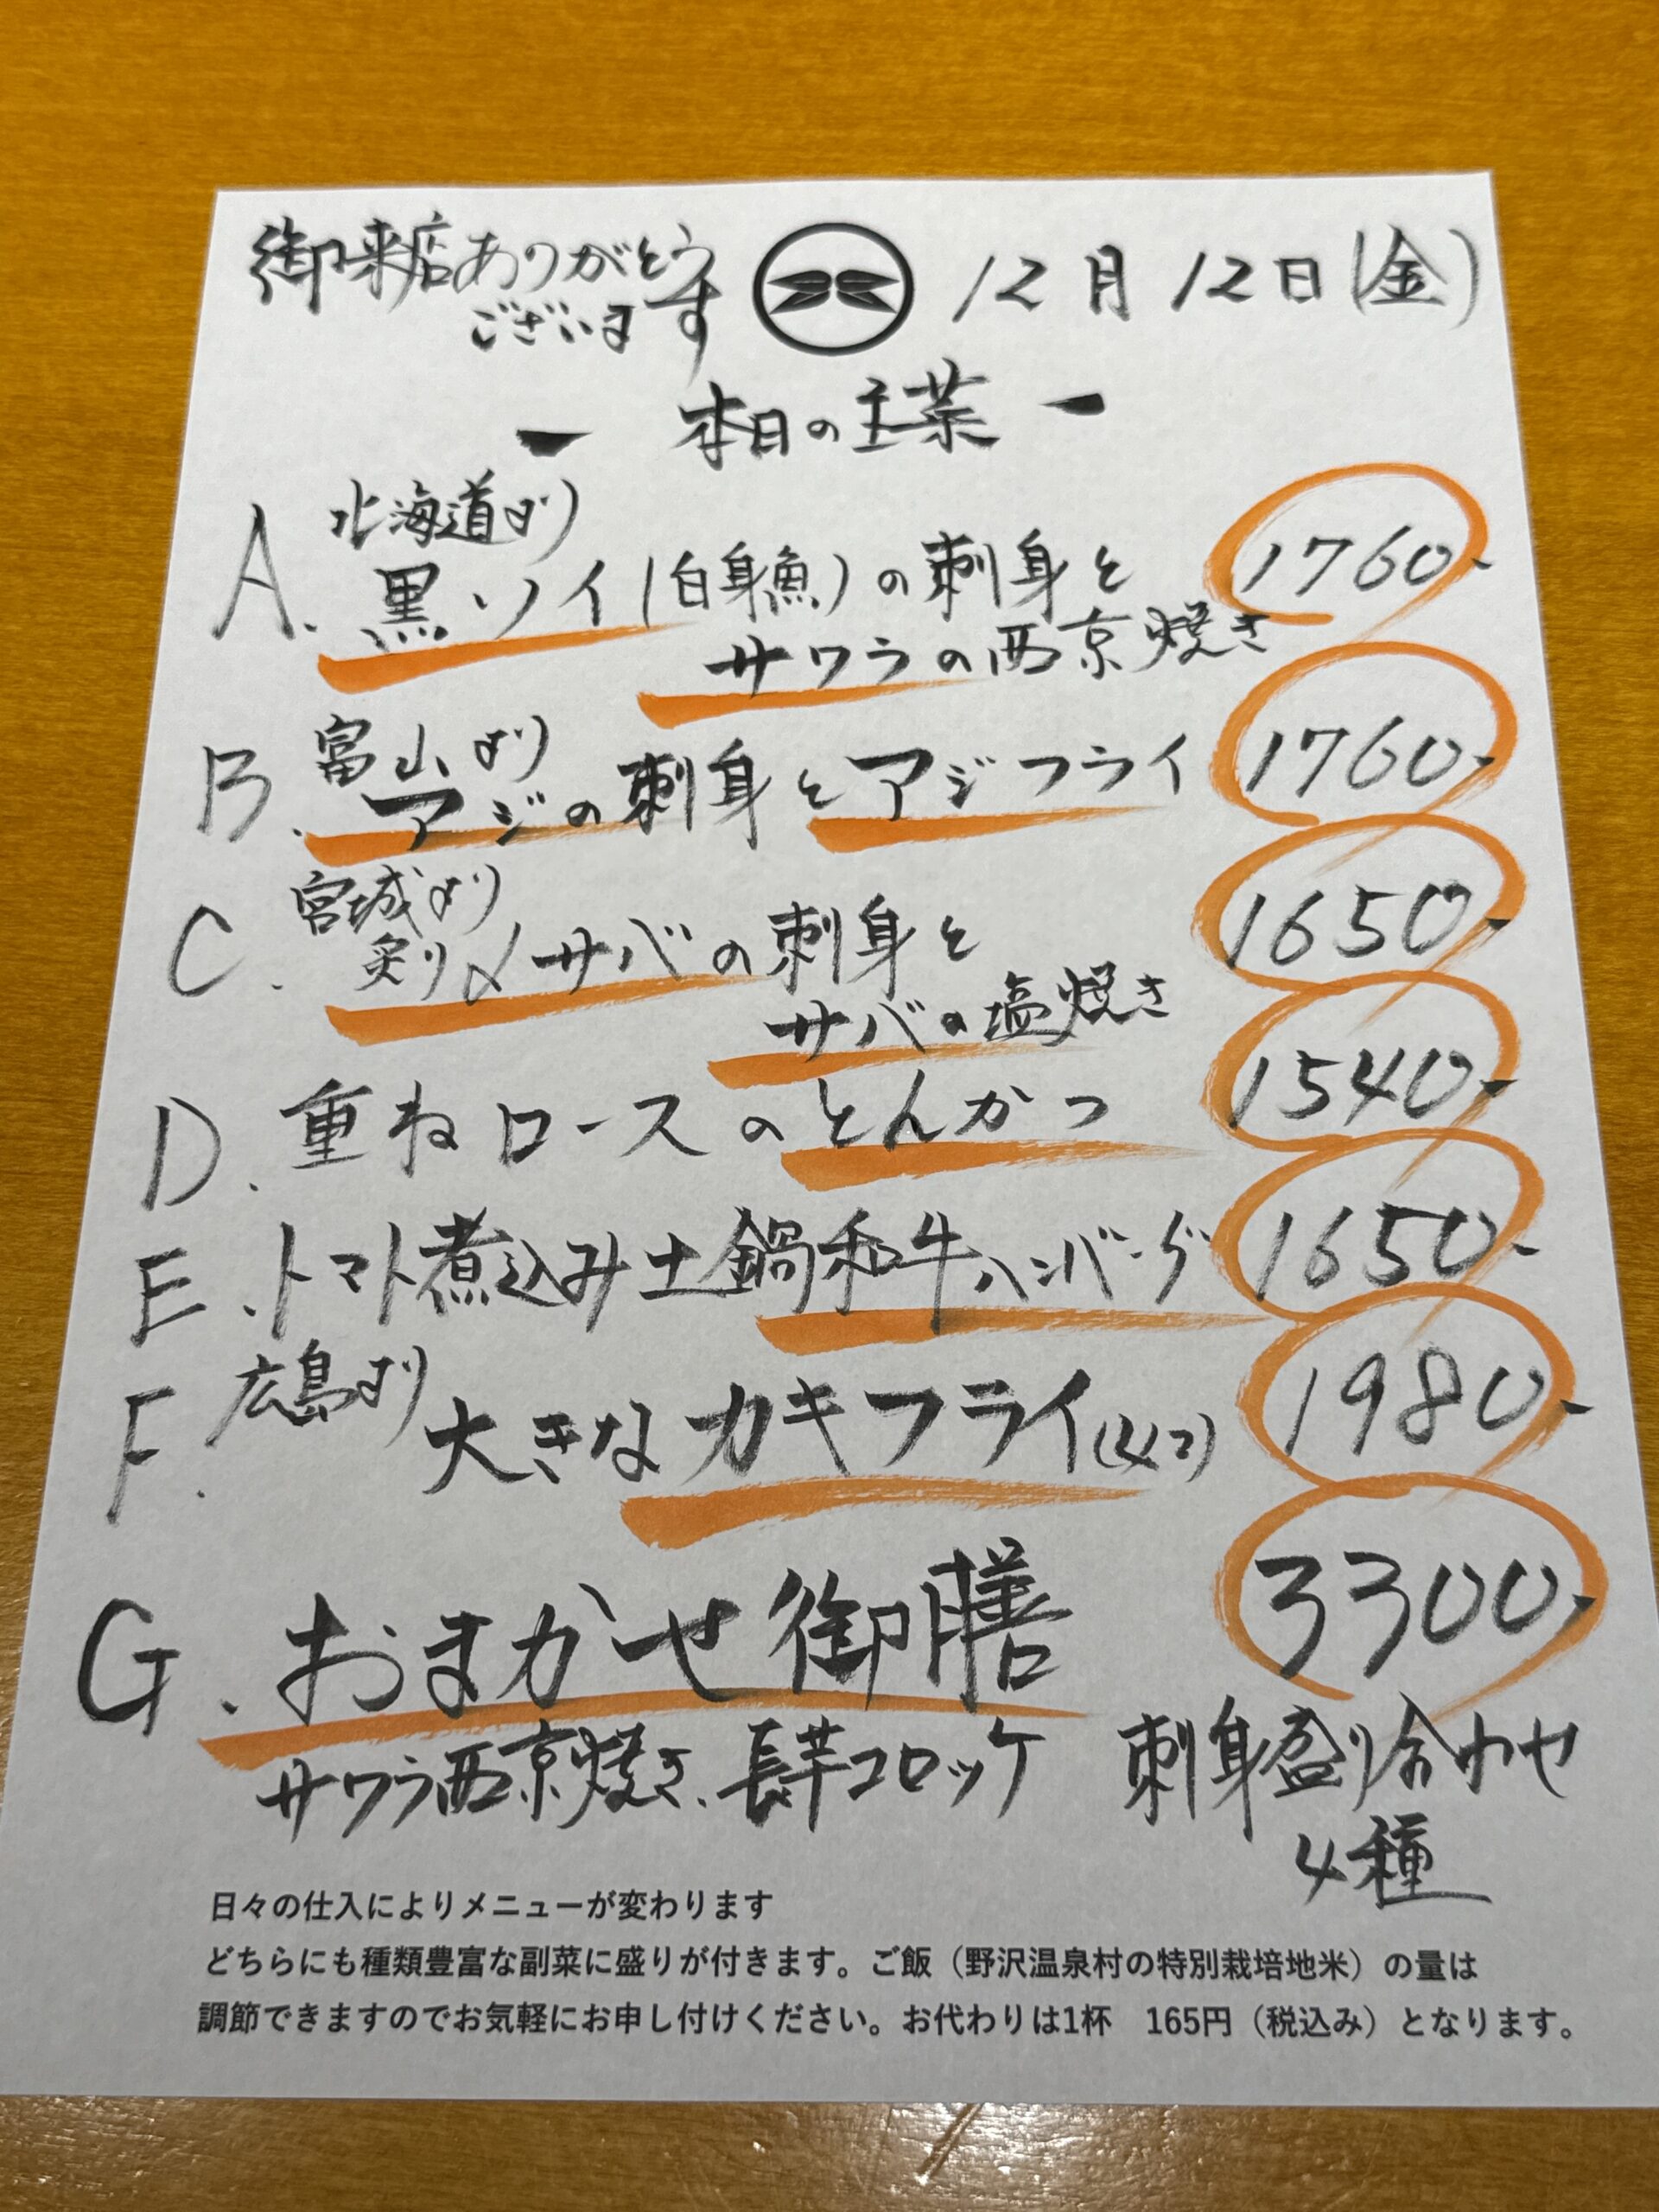 御来店ありがとう
ございます
12月12日(金)
ー 本日の主菜 ー
A. 北海道より
黒ソイ(白身魚)の刺身と 1760-
サワラの西京焼き
B. 富山より
アジの刺身とアジフライ 1760-
C. 宮城より
炙り〆サバの刺身と 1650-
サバの塩焼き
D. 重ねロースのとんかつ 1540-
E. トマト煮込み土鍋和牛ハンバーグ 1650-
F. 広島より
大きなカキフライ(4コ) 1980-
G. おまかせ御膳 3300-
サワラ西京焼き、長芋コロッケ 刺身盛り合わせ
4種
日々の仕入によりメニューが変わります
どちらにも種類豊富な副菜に盛りが付きます。ご飯（野沢温泉村の特別栽培地米）の量は
調節できますのでお気軽にお申し付けください。お代わりは1杯 165円（税込み）となります。